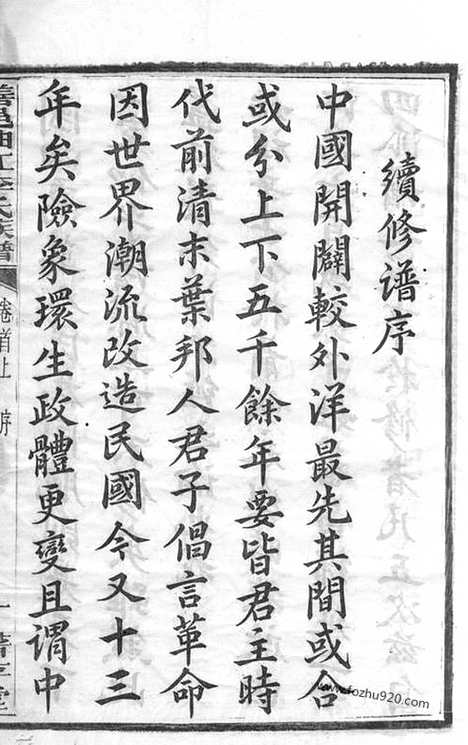 續修譜序
中國開闢較外洋最先其間或合
或分上下五千餘年要皆君主時
代前清末葉邦人君子倡言革命
因世界潮流改造民國今又十三
年矣險象環生政體更變且謂中
氏族譜
卷首上
一
www.fozhu920.com